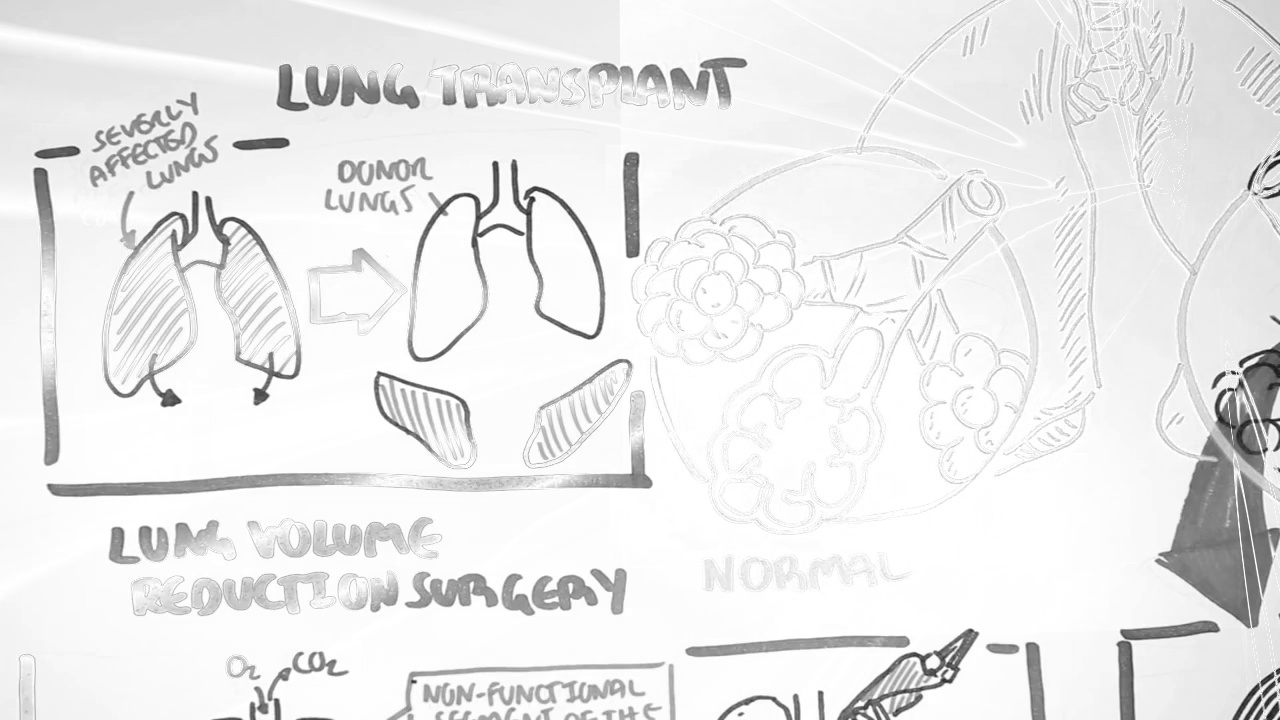 LUNG TRANSPLANT
SEVERLY
AFFECTED
LUNGS
DONOR
LUNGS
LUNG VOLUME
REDUCTION SURGERY
NORMAL
O2
CO2
NON-FUNCTIONAL
SEGMENT OF THE